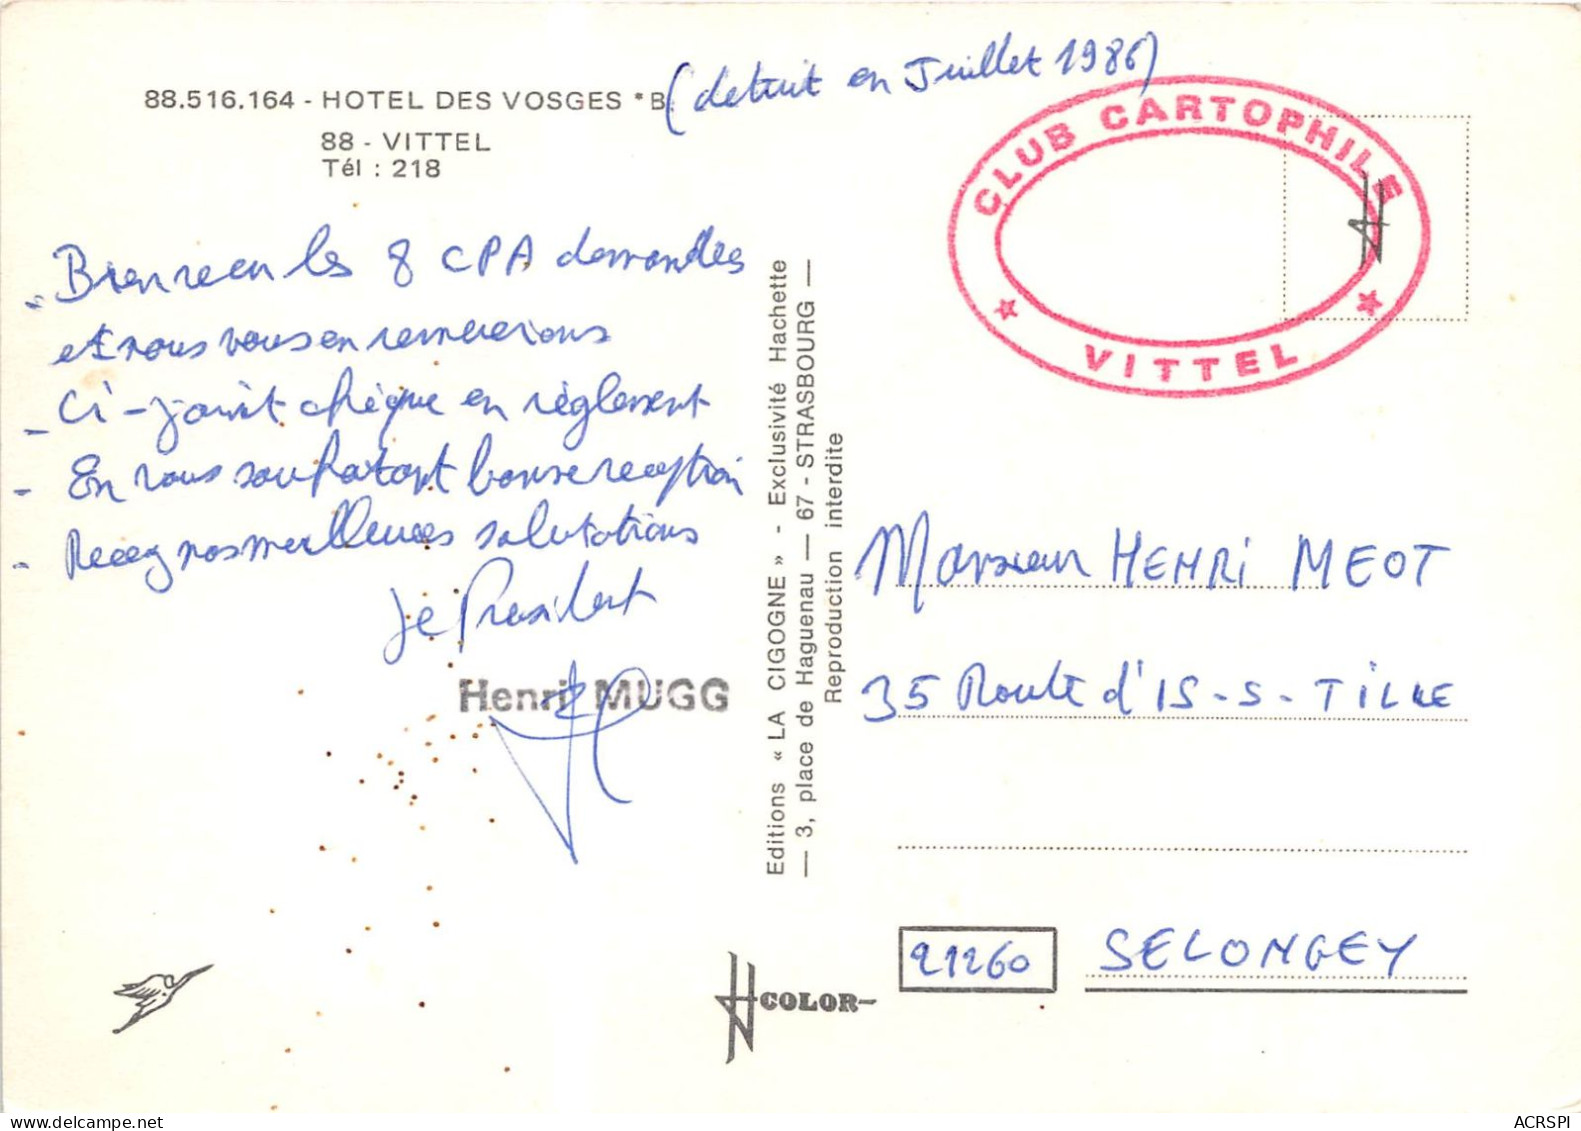 (detruit en Juillet 1986)
88.516.164 - HOTEL DES VOSGES * B
88 - VITTEL
Tél : 218
CLUB CARTOPHILE
★ VITTEL ★
- Bien recu les 8 CPA demandées
et nous vous en remercions
- Ci-joint chèque en règlement
- En vous souhaitant bonne reception
- Recevez nos meilleures salutations
Le President
Henri MUGG
Editions « LA CIGOGNE » - Exclusivité Hachette
— 3, place de Haguenau — 67 - STRASBOURG —
Reproduction interdite
Monsieur HENRI MEOT
35 Route d'IS-S-TILLE
21260 SELONGEY
COLOR
ACRSPI